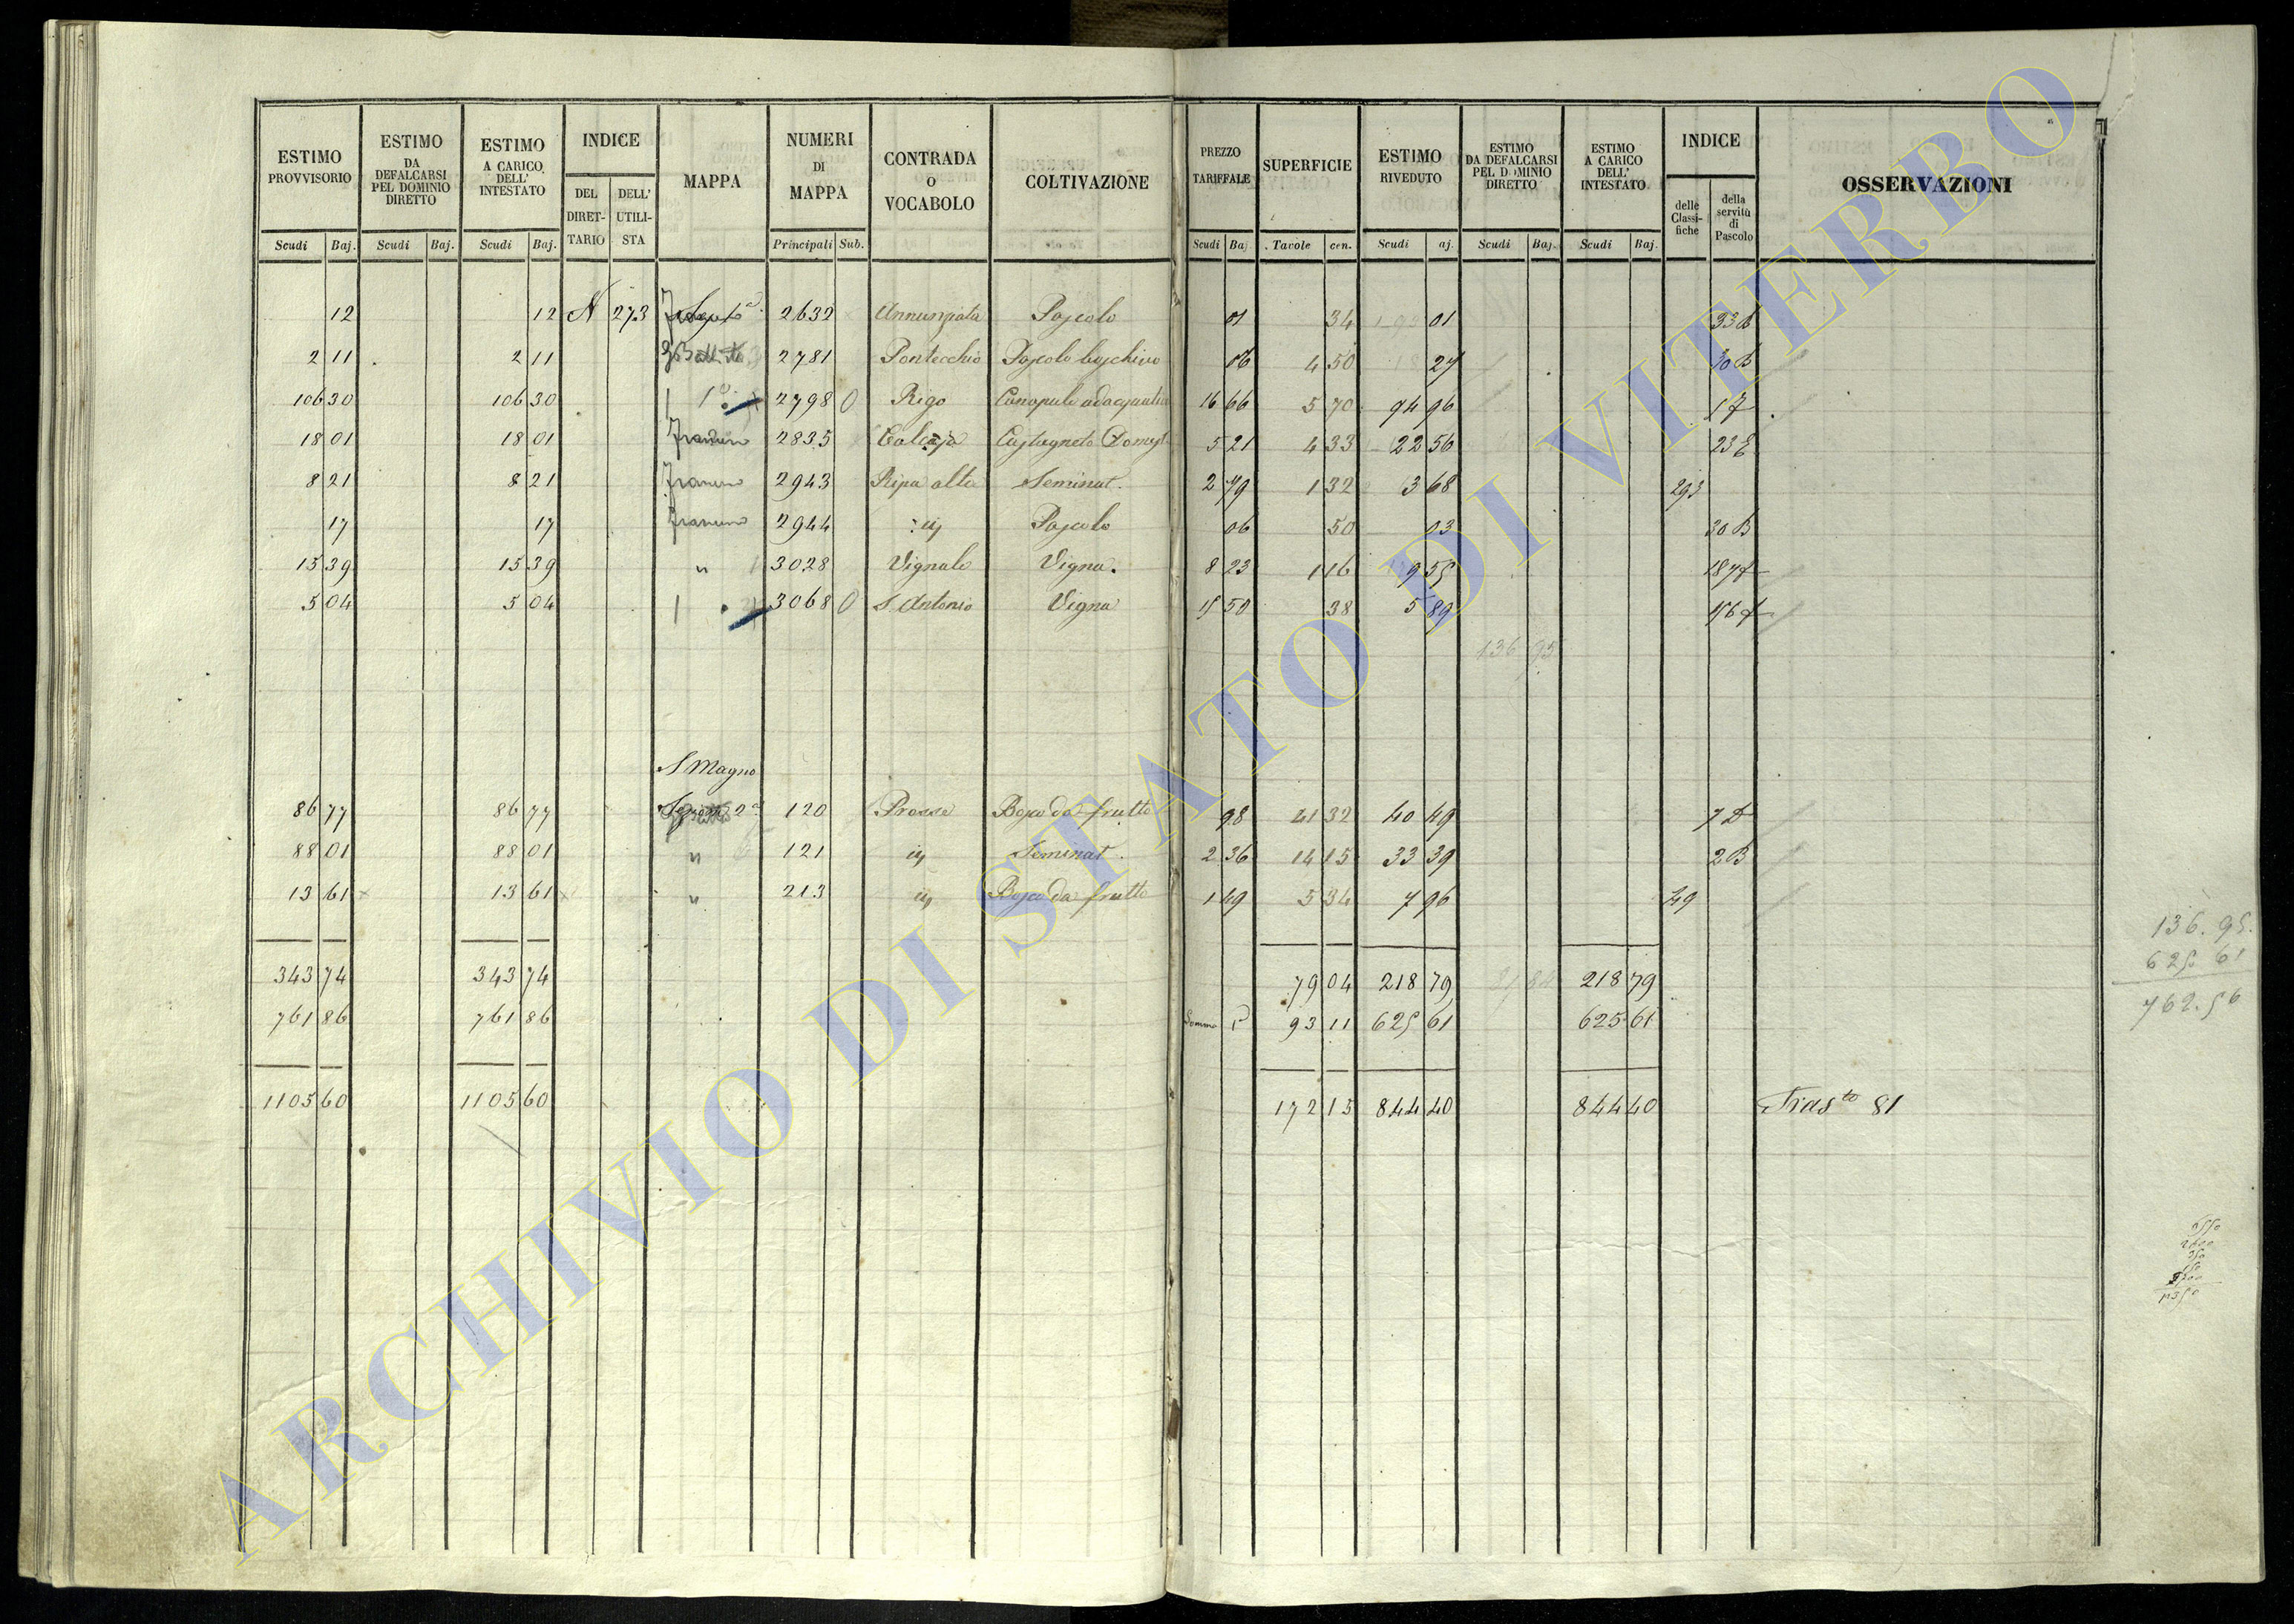 ESTIMO PROVVISORIO | ESTIMO DA DEFALCARSI PEL DOMINIO DIRETTO | ESTIMO A CARICO DELL' INTESTATO | INDICE | MAPPA | NUMERI DI MAPPA | CONTRADA O VOCABOLO | COLTIVAZIONE | PREZZO TARIFFALE | SUPERFICIE | ESTIMO RIVEDUTO | ESTIMO DA DEFALCARSI PEL DOMINIO DIRETTO | ESTIMO A CARICO DELL' INTESTATO | INDICE | OSSERVAZIONI
DEL DIRETTARIO | DELL' UTILISTA | delle Classifiche | della servitù di Pascolo
Scudi | Baj. | Scudi | Baj. | Scudi | Baj. | Principali | Sub. | Scudi | Ba | Tavole | cen. | Scudi | aj. | Scudi | Baj. | Scudi | Baj.
12 | 12 | N | 273 | 2632 | Annunziata | Pascolo | 01 | 34 | 01 | 33 B
2 11 | 2 11 | 2781 | Pontecchio | Pascolo boschivo | 06 | 4 50 | 27 | 30 B
106 30 | 106 30 | 2798 | 0 | Rigo | Canapulo adacquativo | 16 66 | 5 70 | 94 96 | 17
18 01 | 18 01 | 2835 | Castagneto Domest. | 5 21 | 4 33 | 22 56 | 23 E
8 21 | 8 21 | 2943 | Ripa alta | Seminat. | 2 79 | 1 32 | 3 68 | 293
17 | 17 | 2944 | Pascolo | 06 | 50 | 03 | 30 B
15 39 | 15 39 | " | 3028 | Vignalo | Vigna. | 8 23 | 1 16 | 9 55
5 04 | 5 04 | 3068 | 0 | S. Antonio | Vigna | 15 50 | 38 | 5 89
136 95
S Magno
86 77 | 86 77 | Sezione 2a | 120 | Bosco da frutto | 98 | 41 32 | 40 49 | 7 D
88 01 | 88 01 | " | 121 | Seminat. | 2 36 | 14 15 | 33 39 | 2 B
13 61 | 13 61 | " | 213 | Bosco da frutto | 1 49 | 5 34 | 7 96 | 49
343 74 | 343 74 | 79 04 | 218 79 | 218 79
761 86 | 761 86 | Somma | 93 11 | 625 61 | 625 61
1105 60 | 1105 60 | 172 15 | 844 40 | 844 40 | Trasto 81
136. 95.
625 61
762. 56
ARCHIVIO DI STATO DI VITERBO